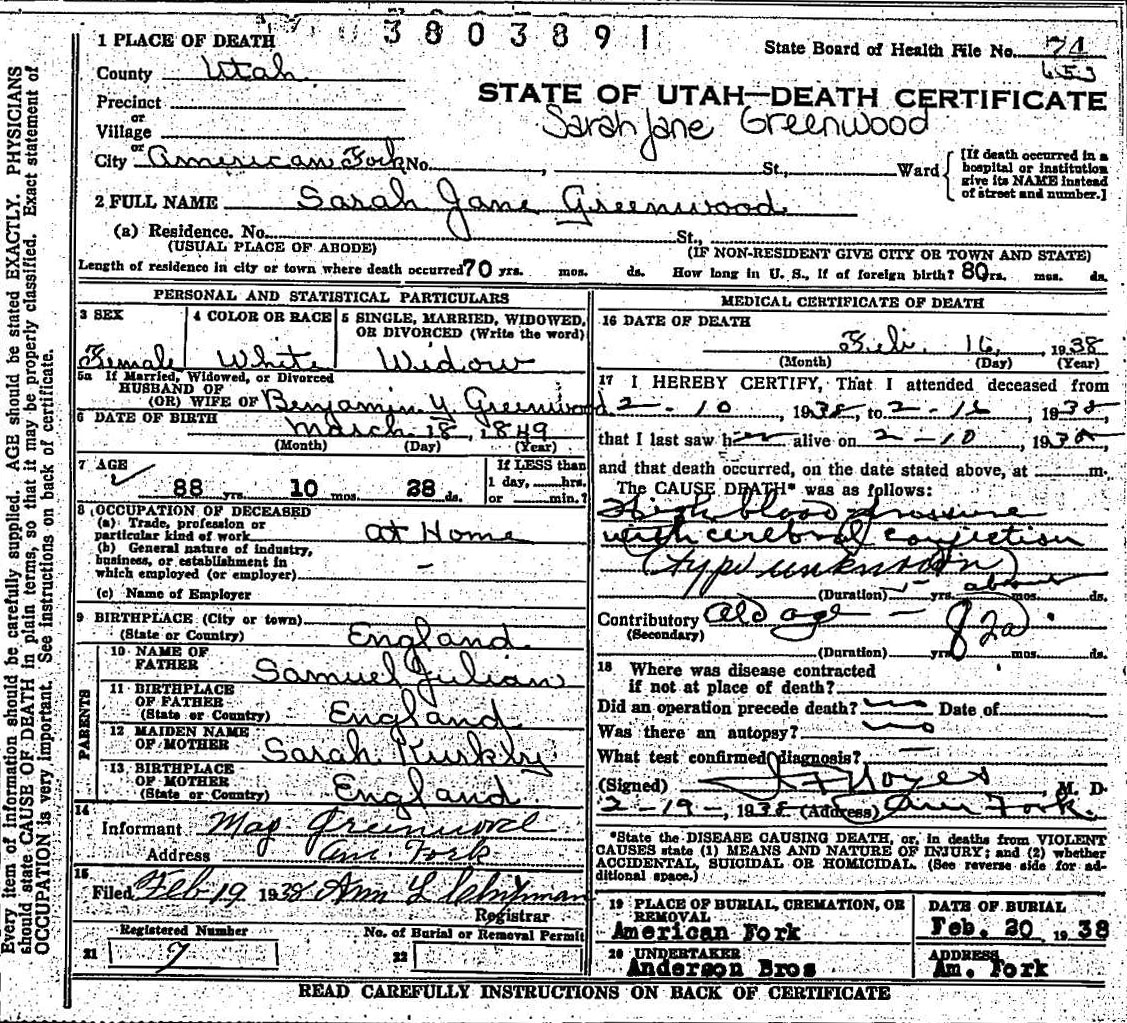 3803891
1 PLACE OF DEATH
State Board of Health File No. 74
653
County Utah
STATE OF UTAH—DEATH CERTIFICATE
Precinct
or
Village
Sarah Jane Greenwood
or
City American Fork No. , St., Ward
[If death occurred in a
hospital or institution
give its NAME instead
of street and number.]
2 FULL NAME Sarah Jane Greenwood
(a) Residence. No. St.,
(USUAL PLACE OF ABODE) (IF NON-RESIDENT GIVE CITY OR TOWN AND STATE)
Length of residence in city or town where death occurred 70 yrs. mos. ds. How long in U. S., if of foreign birth? 80rs. mos. ds.
PERSONAL AND STATISTICAL PARTICULARS
3 SEX
Female
4 COLOR OR RACE
White
5 SINGLE, MARRIED, WIDOWED,
OR DIVORCED (Write the word)
Widow
5a If Married, Widowed, or Divorced
HUSBAND OF
(OR) WIFE OF Benjamin Y Greenwood
6 DATE OF BIRTH
March 18, 1849
(Month) (Day) (Year)
7 AGE
88 yrs. 10 mos. 28 ds.
If LESS than
1 day, hrs.
or min.?
8 OCCUPATION OF DECEASED
(a) Trade, profession or
particular kind of work at Home
(b) General nature of industry,
business, or establishment in
which employed (or employer) -
(c) Name of Employer
9 BIRTHPLACE (City or town)
(State or Country) England
PARENTS
10 NAME OF
FATHER Samuel Julian
11 BIRTHPLACE
OF FATHER
(State or Country) England
12 MAIDEN NAME
OF MOTHER Sarah Kirkby
13 BIRTHPLACE
OF MOTHER
(State or Country) England
14
Informant Mag Greenwood
Address Am. Fork
15
Filed Feb 19 1938 Ann L Shipman
Registrar
Registered Number
21 7
No. of Burial or Removal Permit
22
MEDICAL CERTIFICATE OF DEATH
16 DATE OF DEATH
Feb. 16, 1938
(Month) (Day) (Year)
17 I HEREBY CERTIFY, That I attended deceased from
2-10, 1938, to 2-16 1938,
that I last saw her alive on 2-10, 1938
and that death occurred, on the date stated above, at m.
The CAUSE DEATH* was as follows:
High blood pressure
with cerebral conjection
(type unknown)
(Duration) yrs. about mos. ds.
Contributory Old age -
(Secondary)
(Duration) yrs. mos. ds.
18 Where was disease contracted
if not at place of death?
Did an operation precede death? no Date of
Was there an autopsy? no
What test confirmed diagnosis? -
(Signed) Noyes, M. D.
2-19-, 1938 (Address) Am Fork.
*State the DISEASE CAUSING DEATH, or, in deaths from VIOLENT
CAUSES state (1) MEANS AND NATURE OF INJURY; and (2) whether
ACCIDENTAL, SUICIDAL OR HOMICIDAL. (See reverse side for ad-
ditional space.)
19 PLACE OF BURIAL, CREMATION, OR
REMOVAL
American Fork
DATE OF BURIAL
Feb. 20, 1938
20 UNDERTAKER
Anderson Bros
ADDRESS
Am. Fork
READ CAREFULLY INSTRUCTIONS ON BACK OF CERTIFICATE
Every item of information should be carefully supplied. AGE should be stated EXACTLY. PHYSICIANS
should state CAUSE OF DEATH in plain terms, so that it may be properly classified. Exact statement of
OCCUPATION is very important. See instructions on back of certificate.